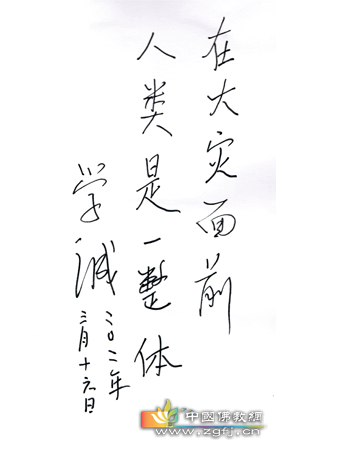 在大灾面前
人类是一整体
学诚
二〇一一年
三月十六日
中國佛教網
www.zgfj.cn